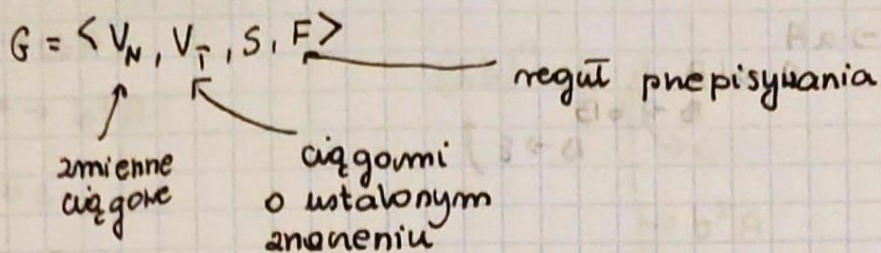 G = < V_N, V_T, S, F >
reguł przepisywania
zmienne
ciągowe
ciągowmi
o ustalonym
znaczeniu